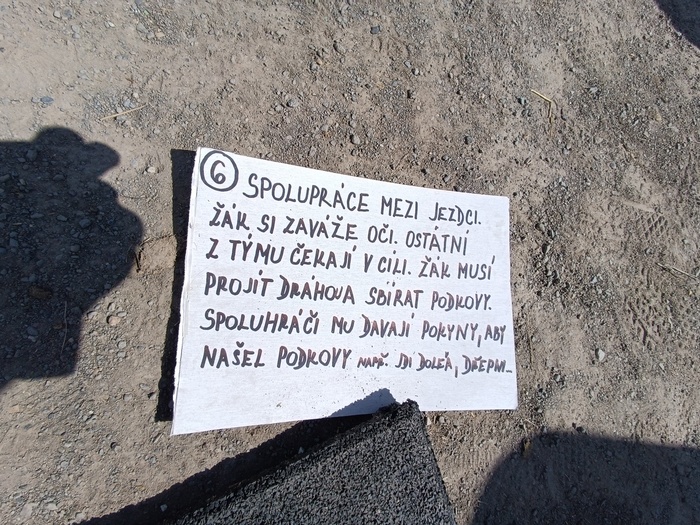 6 SPOLUPRÁCE MEZI JEZDCI.
ŽÁK SI ZAVÁŽE OČI. OSTÁTNÍ
Z TÝMU ČEKAJÍ V CÍLI. ŽÁK MUSÍ
PROJÍT DRÁHOU A SBÍRAT PODKOVY.
SPOLUHRÁČI MU DAVAJÍ POKYNY, ABY
NAŠEL PODKOVY NAPŘ. JDI DOLEVA, DŘEPNI...